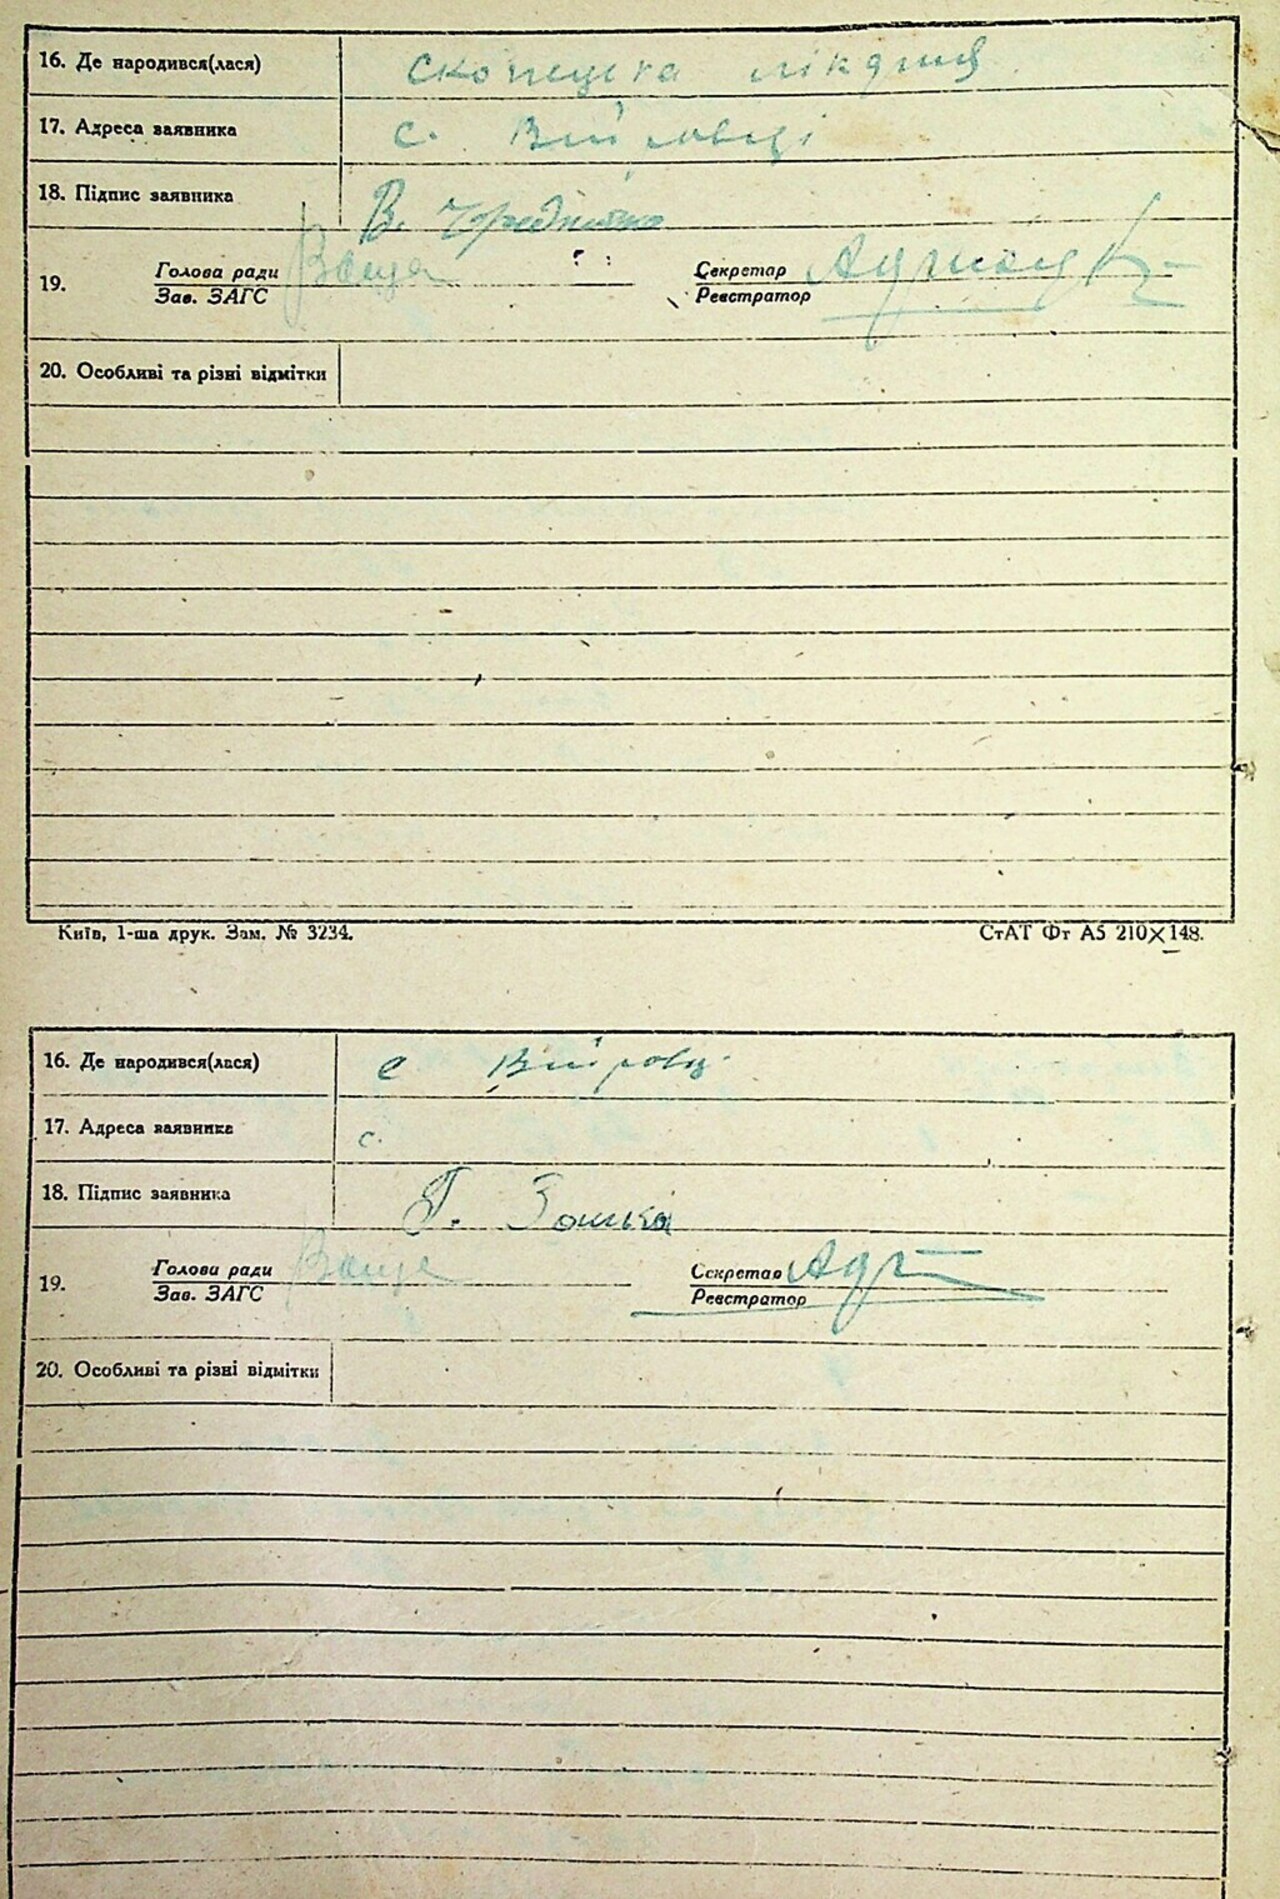 16. Де народився(лася) Скопецька лікарня
17. Адреса заявника с.
18. Підпис заявника В.
19. Голова ради Ваще Секретар
Зав. ЗАГС Реєстратор
20. Особливі та різні відмітки
Київ, 1-ша друк. Зам. № 3234. СтАТ Фт А5 210×148.
16. Де народився(лася) с
17. Адреса заявника с.
18. Підпис заявника Г.
19. Голова ради Ваще Секретар
Зав. ЗАГС Реєстратор
20. Особливі та різні відмітки